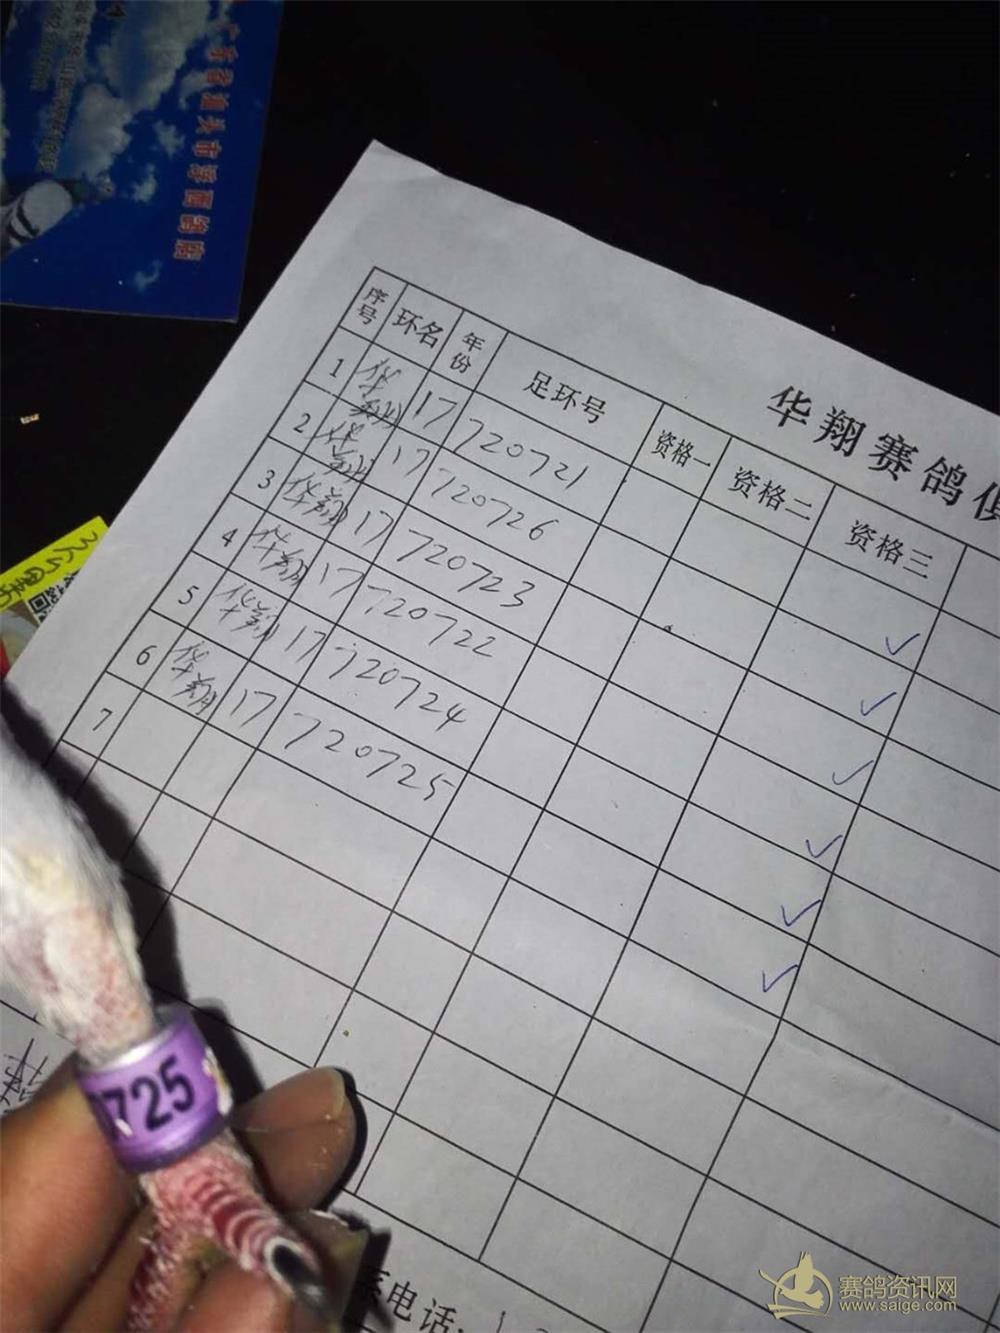 广东省汕头市
华翔赛鸽俱
序号 环名 年份 足环号 资格一 资格二 资格三
1 华翔 17 720721
2 华翔 17 720726
3 华翔 17 720723
4 华翔 17 720722
5 华翔 17 720724
6 华翔 17 720725
7
0725
系电话:
赛鸽资讯网
www.saige.com